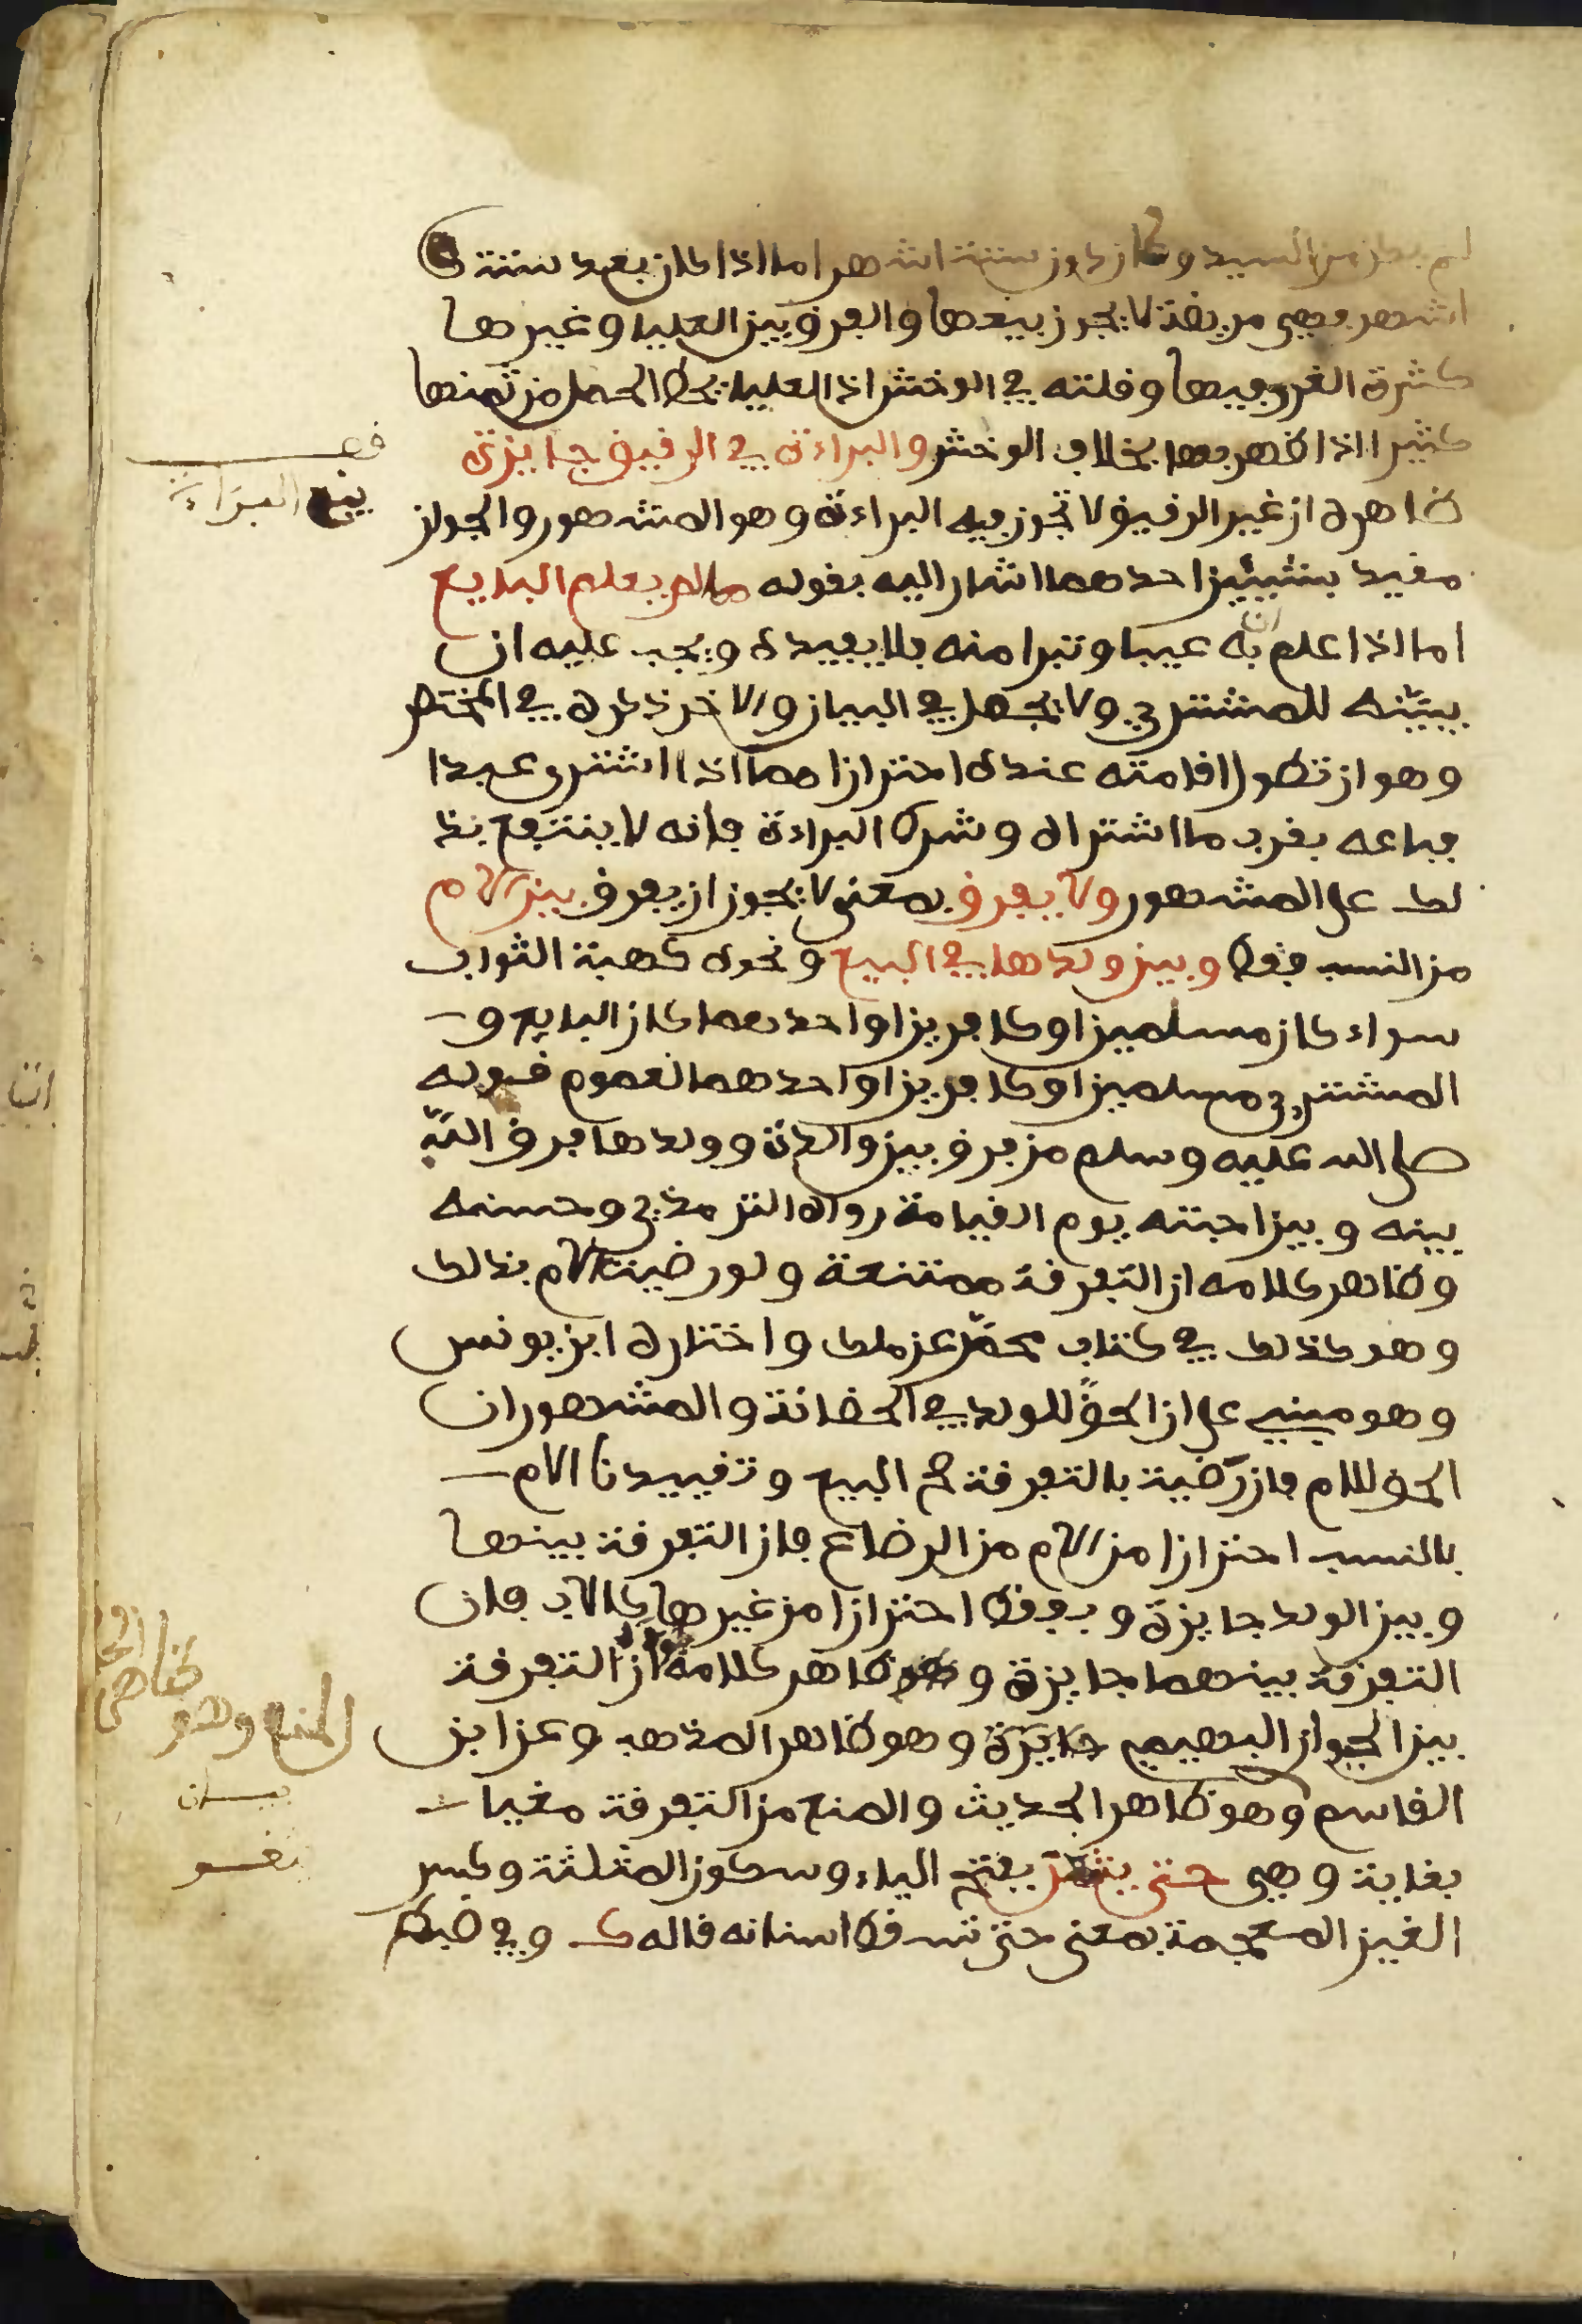 لم يكن من السيد وكان دون ستة اشهر اما اذا كان بعد ستة
اشهر فهى مريضة لا يجوز بيعها والفرق بين العليا وغيرها
كثرة الغرر فيها وقلته في الوخش اذ العليا يحط الحمل من ثمنها
كثيرا اذا ظهر بها بخلاف الوخش والبراءة في الرقيق جايزة
ظاهره ان غير الرقيق لا تجوز فيه البراءة وهو المشهور والجواز
مقيد بشيئين احدهما اشار اليه بقوله مما لم يعلم البايع
اما اذا علم ان به عيبا وتبرا منه فلا يفيده ويجب عليه ان
يبيّنه للمشتري ولا يجمل في البيان والاخر ذكره في المختصر
وهو ان تطول اقامته عنده احترازا مما اذا اشترى عبدا
فباعه بقرب ما اشتراه وشرط البراءة فانه لا ينتفع بذ
لك على المشهور ولا يفرق بمعنى لا يجوز ان يفرق بين الام
من النسب فقط وبين ولدها في البيع ونحوه كهبة الثواب
سواء كان مسلمين او كافرين او احدهما كان البايع و
المشتري مسلمين او كافرين او احدهما لعموم قوله
صلى الله عليه وسلم من فرق بين والدة وولدها فرق الله
بينه وبين احبته يوم القيامة رواه الترمذي وحسنه
وظاهر كلامه ان التفرقة ممتنعة ولو رضيت الام بذلك
وهو كذلك في كتاب محمّد عن ملك واختاره ابن يونس
وهو مبني على ان الحق للولد في الحضانة والمشهور ان
الحق للام فان رضيت بالتفرقة صح البيع وتقييدنا الام
بالنسب احترازا من الام من الرضاع فان التفرقة بينها
وبين الولد جايزة وبفقط احترازا من غيرها كالاب فان
التفرقة بينهما جايزة وظاهر كلامه ان التفرقة
بين الحيوان البهيمي جايزة وهو ظاهر المذهب وعن ابن
القاسم وهو ظاهر الحديث والمنع من التفرقة مغيا
بغاية وهى حتى يثغر بفتح الياء وسكون المثلثة وكسر
الغين المعجمة بمعنى حتى تسقط اسنانه قاله ك وفي ضبطه
بيع البراءة
ظاهر
المنع وهو